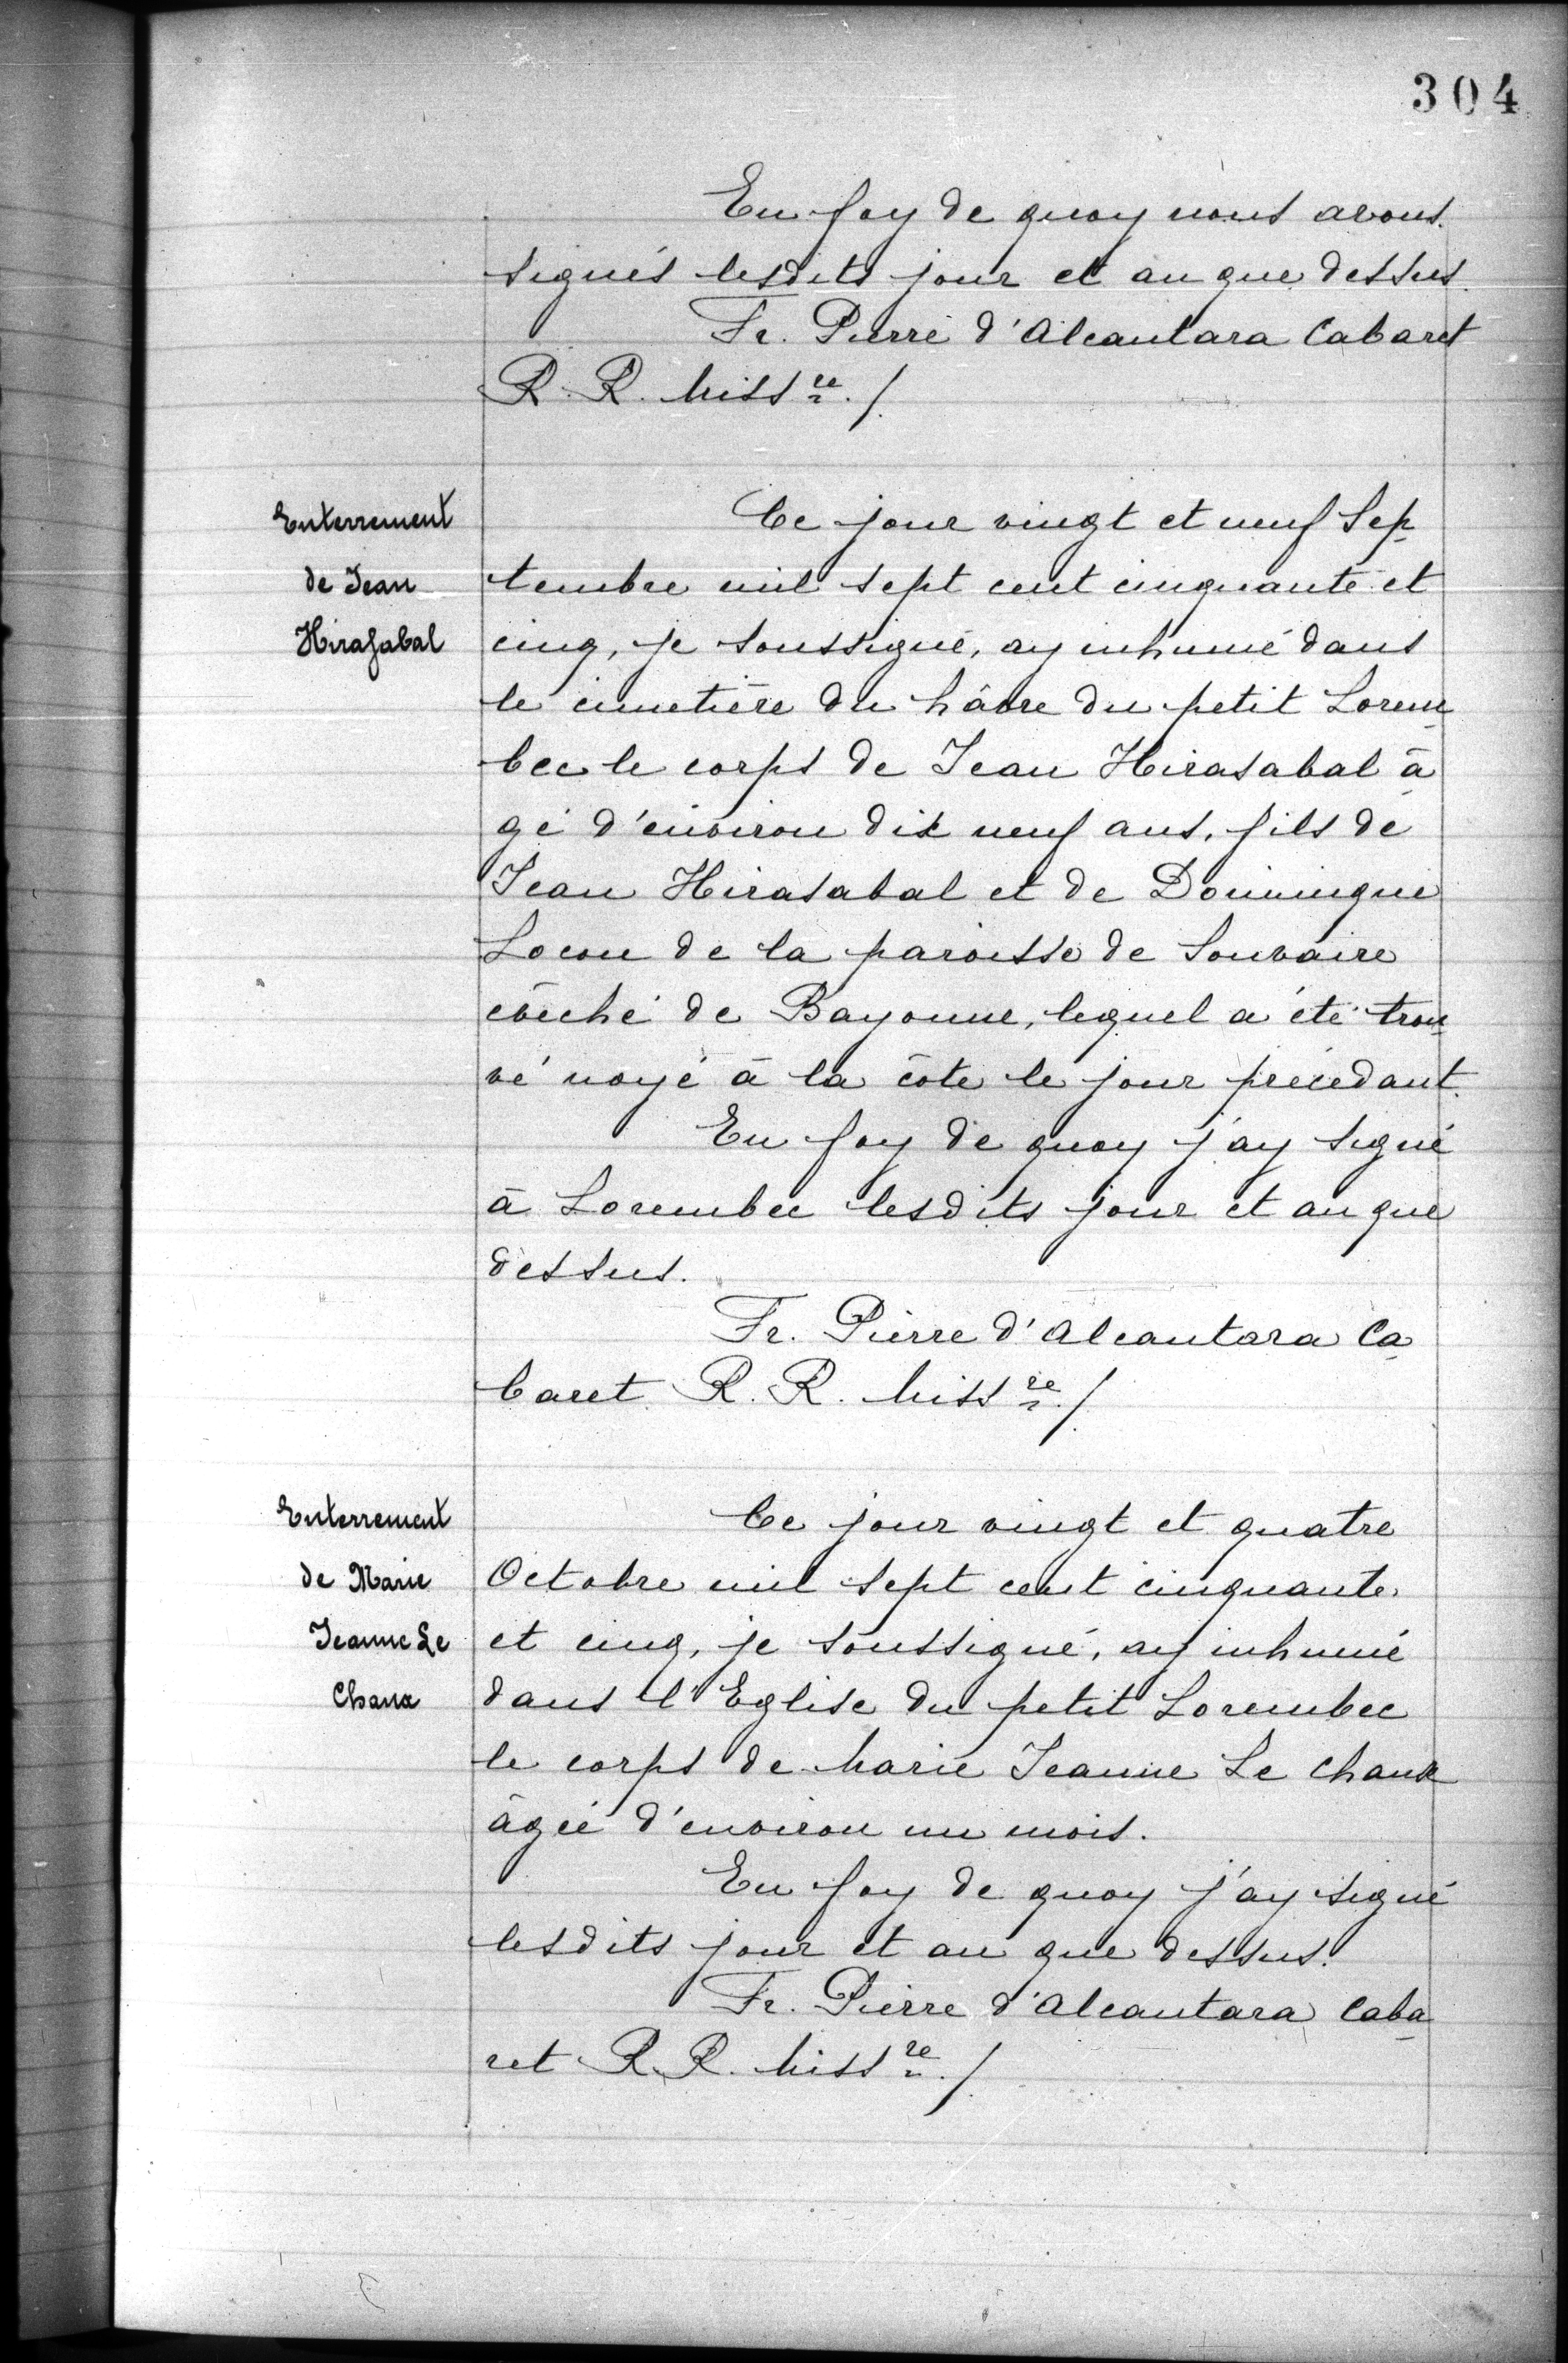 304
En foy de quoy nous avons
signés lesdits jour et an que dessus.
Fr. Pierre d'Alcantara Cabaret
R. R. Miss re ./.
Enterrement
de Jean
Hirasabal
Ce jour vingt et neuf Sep
tembre mil sept cent cinquante et
cinq, je soussigné, ay inhumé dans
le cimetière du hâvre du petit Lorem
bec le corps de Jean Hirasabal â
gé d'environ dix neuf ans, fils de
Jean Hirasabal et de Domingue
Locou de la paroisse de Souvaire
évêché de Bayonne, lequel a été trou
vé noyé à la côte le jour précédant.
En foy de quoy j'ay signé
à Lorembec lesdits jour et an que
dessus.
Fr. Pierre d'Alcantara Ca
baret R. R. Miss re ./.
Enterrement
de Marie
Jeanne Le
Chaux
Ce jour vingt et quatre
Octobre mil sept cent cinquante
et cinq, je soussigné, ay inhumé
dans l'Eglise du petit Lorembec
le corps de Marie Jeanne Le Chaux
âgée d'environ un mois.
En foy de quoy j'ay signé
lesdits jour et an que dessus.
Fr. Pierre d'Alcantara Caba
ret R. R. Miss re ./.